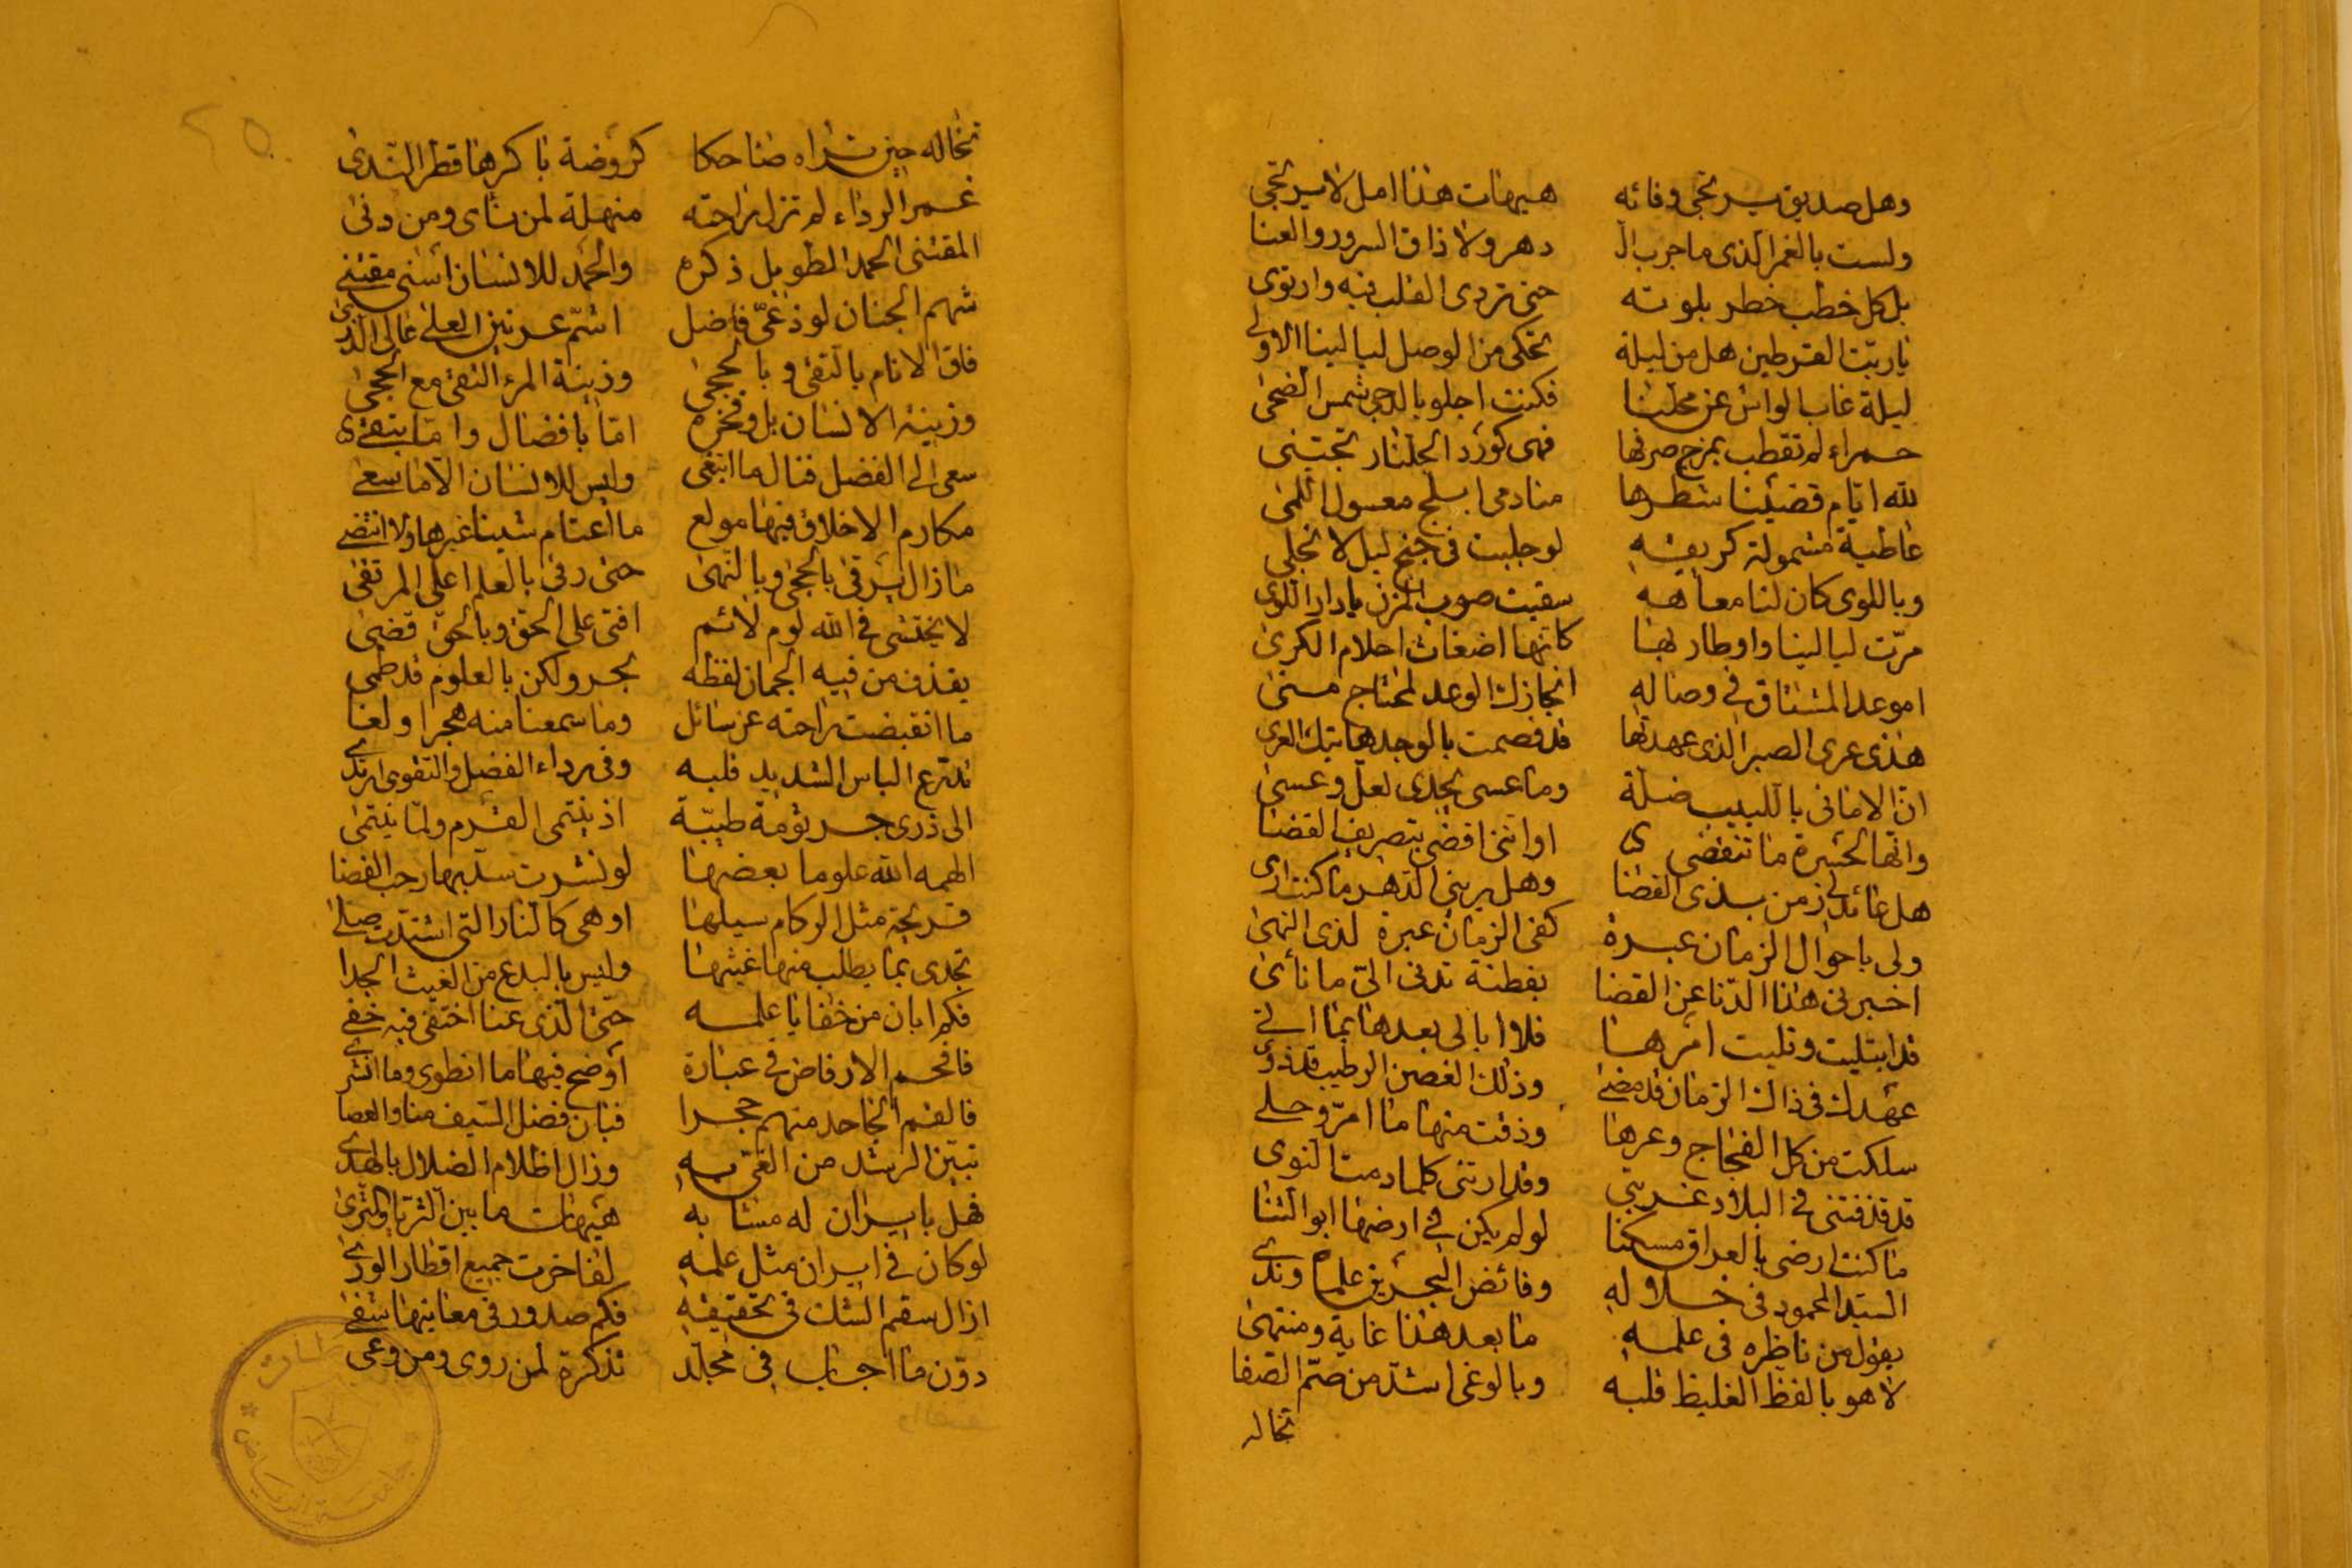 وهل صديق يرتجى وفائه هيهات هذا امل لا يرتجى
ولست بالغمر الذى ما جرب الـ دهر ولا ذاق السرور والعنا
بل كل خطب خطر بلوته حتى تروى القلب فيه وارتوى
ياربّة القرطين هل من ليلة تحكى من الوصل ليالينا الاولى
ليلة غاب الواش عن محلنا فكنت اجلو بالدجى شمس الضحى
حمراء لم تقطب بمزج صرفها فهى كورد الجلنار تجتنى
لله ايام قضينا شطرها منادمى ابلج معسول اللمى
عاطية مشمولة كريقه لو جليت فى جنح ليل لانجلى
وباللوى كان لنا معاهد سقيت صوب المزن يا دار اللوى
مرّت ليالينا واوطار بها كانها اضغاث احلام الكرى
اموعد المشتاق فى وصاله انجازك الوعد لمحتاج متى
هذى عرى الصبر الذى عهدتها قد فصمت بالوجد هاتيك العرى
انّ الامانى باللبيب ضلة وما عسى يجدى لعلّ وعسى
وانها لحسرة ما تنقضى اواننى اقضى بتصريف القضا
هل عائد لى زمن بذى الغضا وهل يرينى الدهر ما كنت ارى
ولى باحوال الزمان عبرة كفى الزمان عبرة لذى النهى
اخبرنى هذا الدنا عن القضا بفطنة تدنى الىّ ما نأى
قد ابتليت وتليت امرها فلا ابالى بعدها بما اتى
عهدك فى ذاك الزمان قد مضى وذلك الغصن الرطيب قد ذوى
سلكت من كل الفجاج وعرها وذقت منها ما امرّ وحلى
قد قذفتنى فى البلاد غربتى وقد ارتنى كلما رمت النوى
ما كنت ارضى بالعراق مسكنا لو لم يكن فى ارضها ابو الثنا
السيد المحمود فى خلاله وفائض البحرين علما وندى
يقول من ناظره فى علمه ما بعد هذا غاية ومنتهى
لا هو بالفظ الغليظ قلبه وبالوغى اشدّ من صمّ الصفا
تخاله
تخاله حين تراه ضاحكا كروضة باكرها قطر الندى
غمر الرداء لم تزل راحته منهلة لمن نأى ومن دنى
المقتنى الحمد الطويل ذكره والحمد للانسان اسنى مقتنى
شهم الجنان لوذعىّ فاضل اشمّ عرنين العلى عالى الذرى
فاق الانام بالتقى وبالحجى وزينة المرء التقى مع الحجى
وزينة الانسان بل وفخره امّا بافضال وامّا بتقى
سعى الى الفضل فنال ما ابتغى وليس للانسان الا ما سعى
مكارم الاخلاق فيها مولع ما اعتام شيئا غيرها ولا انتضى
ما زال يرقى بالحجى وبالنهى حتى رقى بالعلم اعلى المرتقى
لا يختشى فى الله لوم لائم افتى على الحق وبالحق قضى
يقذف من فيه الجمان لفظه بحر ولكن بالعلوم قد طمى
ما انقبضت راحته عن سائل وما سمعنا منه هجرا ولغا
تدرع الباس الشديد قلبه وفى رداء الفضل والتقوى ارتدى
الى ذرى جرثومة طيبة اذ ينتمى القرم ولمّا ينتمى
الهمه الله علوما بعضها لو نشرت سدّ بها رحب الفضا
قريحة مثل الركام سيلها او هى كالنار التى اشتدت صلى
تجدى بما يطلب منها غيثها وليس بالبدع من الغيث الجدا
فكم ابان من خفايا علمه حتى الذى عنا اختفى فيه خفى
فافحم الارفاض فى عبارة أوضح فيها ما انطوى وما انتشر
فالقم الجاحد منهم حجرا فبان فضل السيف منا والعصا
تبيّن الرشد من الغىّ به وزال اظلام الضلال بالهدى
فهل بايران له مشابه هيهات ما بين الثريا والثرى
لو كان فى ايران مثل علمه لفاخرت جميع اقطار الورى
ازال سقم الشك فى تحقيقه فكم صدور فى معانيها شفى
دوّن ما اجاب فى مجلد تذكرة لمن روى ومن وعى